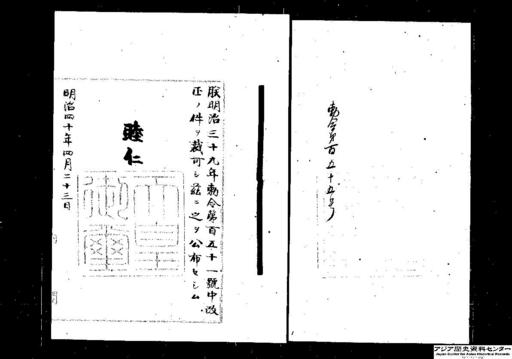 勅令第百五十五号
朕明治三十九年勅令第百五十一號中改
正ノ件ヲ裁可シ茲ニ之ヲ公布セシム
睦仁
天皇
御璽
明治四十年四月二十三日
アジア歴史資料センター
Japan Center for Asian Historical Records